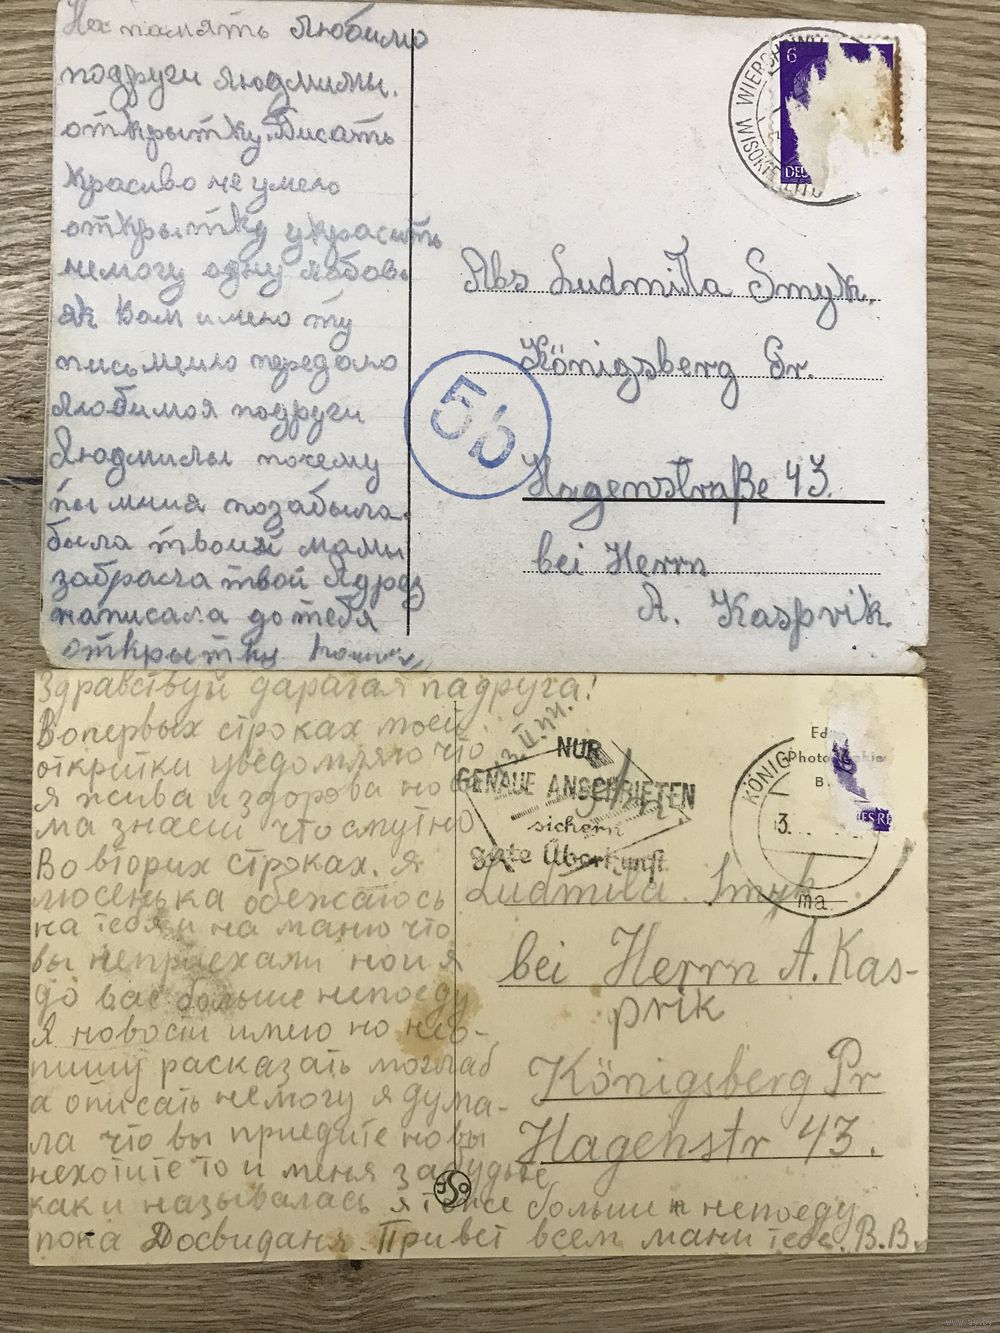 На память Любимо
подруги Людмилы.
открытку. Писать
красиво не умею
открытку украсить
немогу одну любовь
як Вам имею ту
письменно передаю
Любимоя подруги
Людмилы почему
ты миня позабыла.
была твоий мамы
забрасча твой Ядрез
написала до тебя
открытку
6
WISOKIE LIT
WIERCHOWI
DEU
Abs Ludmiła Smyk.
Königsberg Pr.
5b
Hagenstraße 43.
bei Herrn
A. Kaspvik.
Здравствуй дарагая падруга!
Вопервых строках моей
откритки уведомляю что
я жива и здорова но
ма знаеш что смутно
Во вторих строках. я
люсенька обежаюсь
на тебя и на маню что
вы неприехали но и я
до вас больше непоеду
Я новости имею но нео-
пишу расказать моглаб
а описать немогу я дума-
ла что вы приедите но вы
нехотите то и меня забудьте
как и називалась я тоже больши н непоеду
пока Досвиданя. Привет всем мани тебе. В.В.
13.II.44.
NUR
GENAUE ANSCHRIFTEN
sichern
gute Überkunft
KÖNIGS
3.
ma
Photo
B.
ES RE
Ludmila Smyk
bei Herrn A. Kas-
prik
Königsberg Pr
Hagenstr 43.
www.ay.by